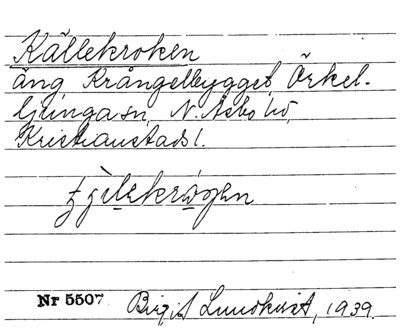 Källekroken
äng Krångelbygget, Örkel-
ljunga sn, N. Åsbo hd,
Kristianstads l.
Nr 5507 Birgit Lundkvist, 1939.